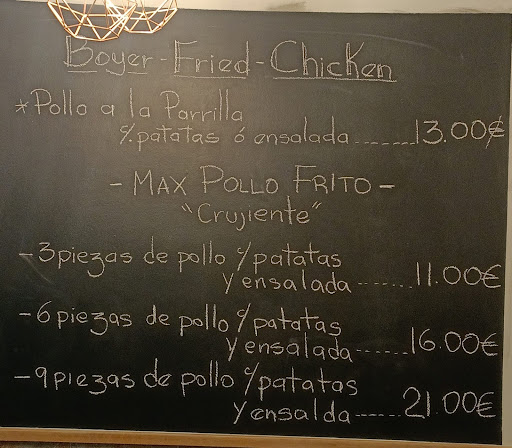 Boyer-Fried-Chicken
*Pollo a la Parrilla
c/patatas ó ensalada.......13.00€
- MAX POLLO FRITO -
"Crujiente"
-3piezas de pollo c/patatas
y ensalada.....11.00€
-6piezas de pollo c/patatas
y ensalada......16.00€
-9piezas de pollo c/patatas
y ensalda.....21.00€